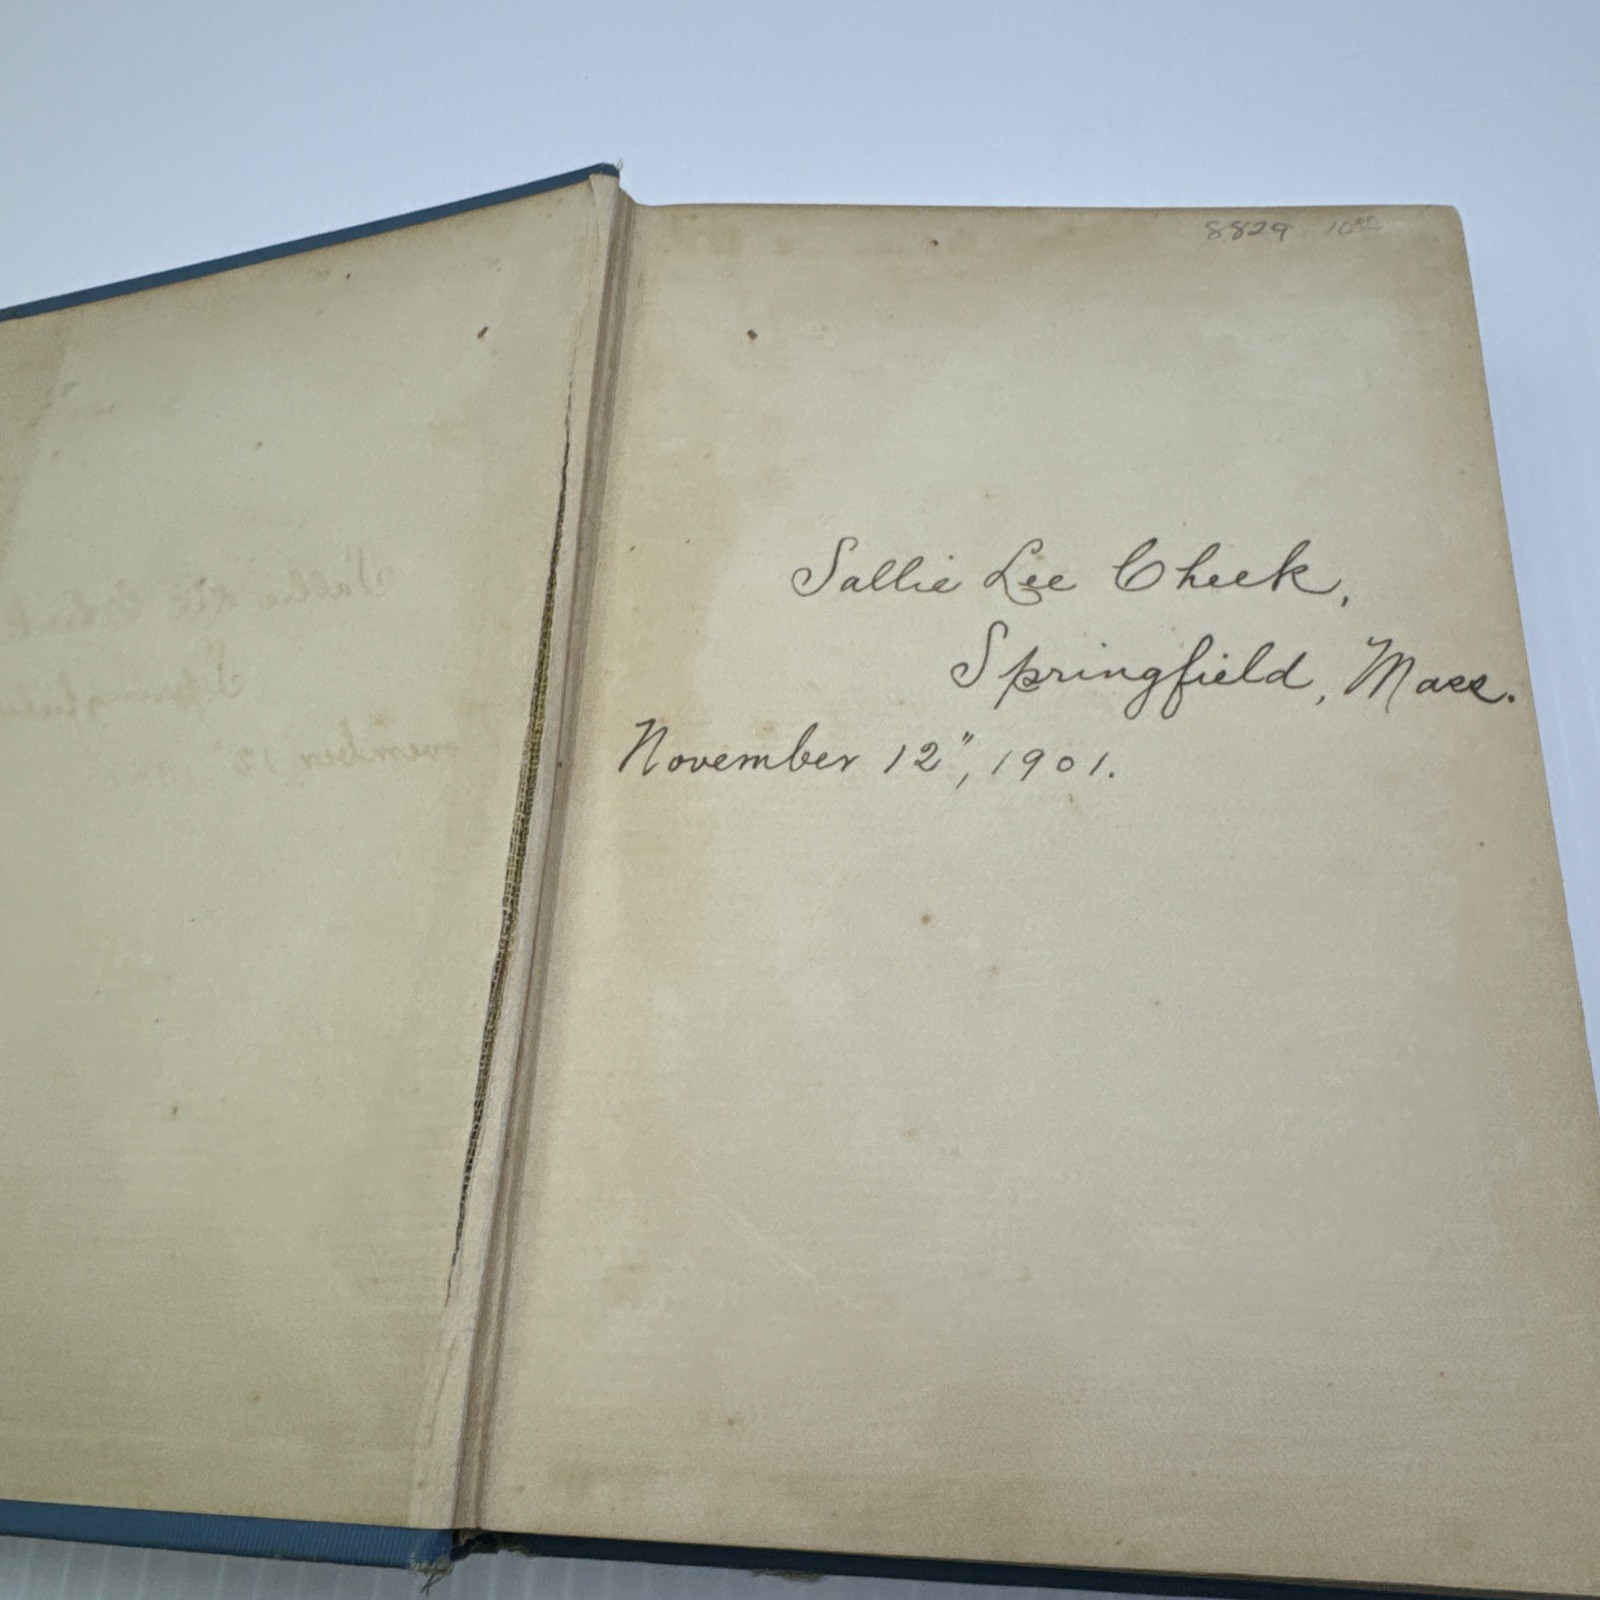 8829
Sallie Lee Cheek,
Springfield, Mass.
November 12", 1901.